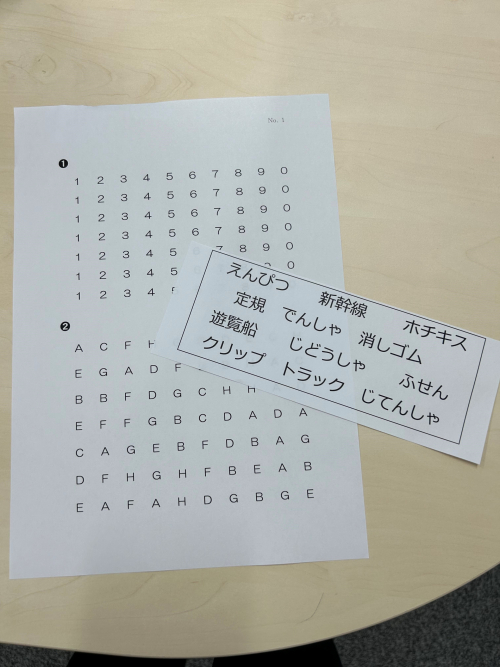 No. 1
❶
1 2 3 4 5 6 7 8 9 0
1 2 3 4 5 6 7 8 9 0
1 2 3 4 5 6 7 8 9 0
1 2 3 4 5 6 7 8 9 0
1 2 3 4 5 7 8 9 0
1 2 3 4 5 9 0
1 2 3 4
❷
A C F H
E G A D F
B B F D G C H H
E F F G B C D A D A
C A G E B F D B A G
D F H G H F B E A B
E A F A H D G B G E
えんぴつ 新幹線 ホチキス
定規 でんしゃ 消しゴム
遊覧船 じどうしゃ ふせん
クリップ トラック じてんしゃ